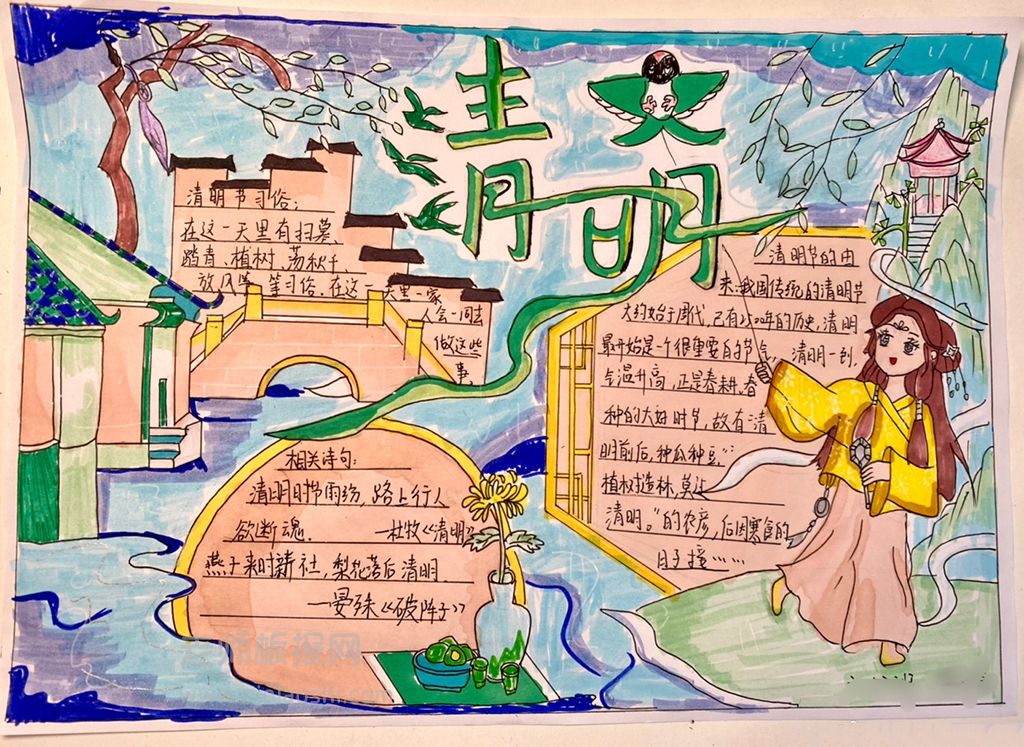 清明
清明节习俗:
在这一天里有扫墓、
踏青、植树、荡秋千、
放风筝等习俗,在这一天里一家
人会一同去
做这些
事。
清明节的由
来:我国传统的清明节
大约始于周代,已有2500年的历史,清明
最开始是一个很重要的节气,清明一到,
气温升高,正是春耕、春
种的大好时节,故有“清
明前后,种瓜种豆。”
植树造林,莫过
清明。”的农彦,后因寒食的
日子接……
相关诗句:
清明时节雨纷,路上行人
欲断魂。——杜牧《清明》
燕子来时新社,梨花落后清明
——晏殊《破阵子》
师板报网